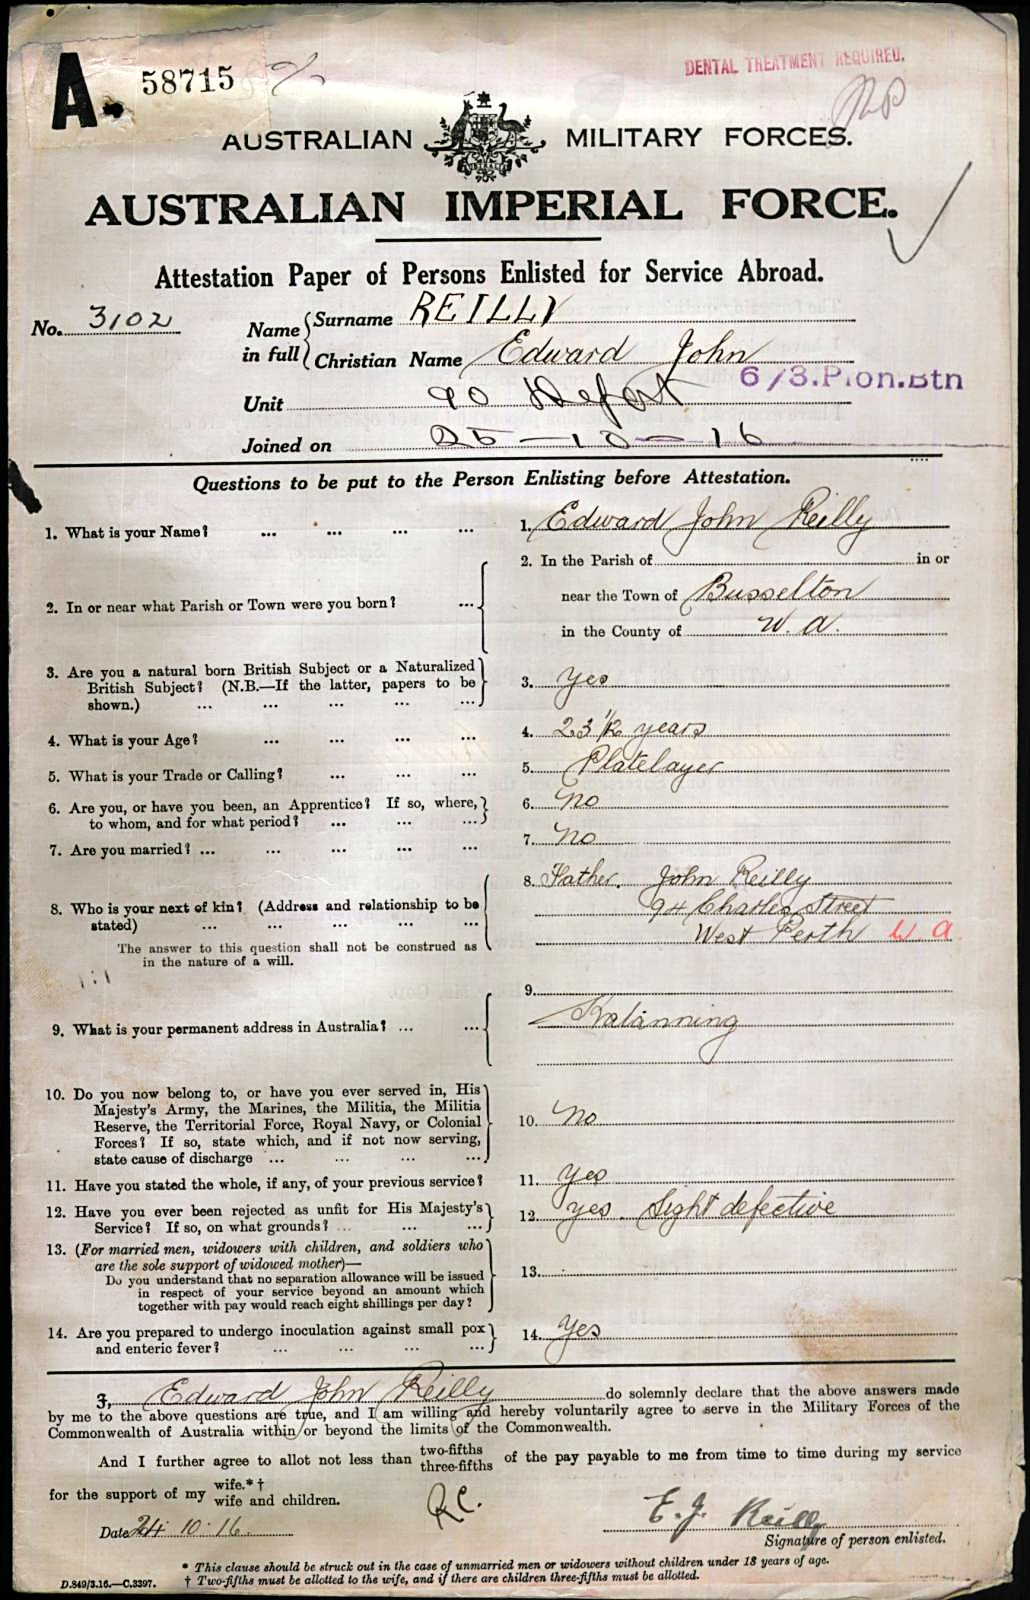 A 58715
DENTAL TREATMENT REQUIRED.
AUSTRALIAN MILITARY FORCES.
AUSTRALIAN IMPERIAL FORCE.
Attestation Paper of Persons Enlisted for Service Abroad.
No. 3102
Name in full
Surname REILLY
Christian Name Edward John
6/3.Pion.Btn
Unit 90 Depot
Joined on 25-10-16
Questions to be put to the Person Enlisting before Attestation.
1. What is your Name? ... ... ... ... 1. Edward John Reilly
2. In or near what Parish or Town were you born? ... 2. In the Parish of in or
near the Town of Busselton
in the County of W. A.
3. Are you a natural born British Subject or a Naturalized
British Subject? (N.B.—If the latter, papers to be
shown.) ... ... ... ... ... 3. Yes
4. What is your Age? ... ... ... ... 4. 23 1/2 years
5. What is your Trade or Calling? ... ... ... 5. Platelayer
6. Are you, or have you been, an Apprentice? If so, where,
to whom, and for what period? ... ... ... 6. No
7. Are you married? ... ... ... ... ... 7. No
8. Who is your next of kin? (Address and relationship to be
stated) ... ... ... ... ...
The answer to this question shall not be construed as
in the nature of a will.
8. Father. John Reilly
94 Charles Street
West Perth W. A.
9. What is your permanent address in Australia? ... ... 9.
Katanning
10. Do you now belong to, or have you ever served in, His
Majesty's Army, the Marines, the Militia, the Militia
Reserve, the Territorial Force, Royal Navy, or Colonial
Forces? If so, state which, and if not now serving,
state cause of discharge ... ... ... ... 10. No
11. Have you stated the whole, if any, of your previous service? 11. Yes
12. Have you ever been rejected as unfit for His Majesty's
Service? If so, on what grounds? ... ... ... 12. Yes. Sight defective
13. (For married men, widowers with children, and soldiers who
are the sole support of widowed mother)—
Do you understand that no separation allowance will be issued
in respect of your service beyond an amount which
together with pay would reach eight shillings per day? 13.
14. Are you prepared to undergo inoculation against small pox
and enteric fever? ... ... ... ... 14. Yes
I, Edward John Reilly do solemnly declare that the above answers made
by me to the above questions are true, and I am willing and hereby voluntarily agree to serve in the Military Forces of the
Commonwealth of Australia within or beyond the limits of the Commonwealth.
And I further agree to allot not less than two-fifths three-fifths of the pay payable to me from time to time during my service
for the support of my wife.*† wife and children.
RC.
Date 24. 10. 16. E. J. Reilly
Signature of person enlisted.
* This clause should be struck out in the case of unmarried men or widowers without children under 18 years of age.
† Two-fifths must be allotted to the wife, and if there are children three-fifths must be allotted.
D.849/3.16.—C.3397.